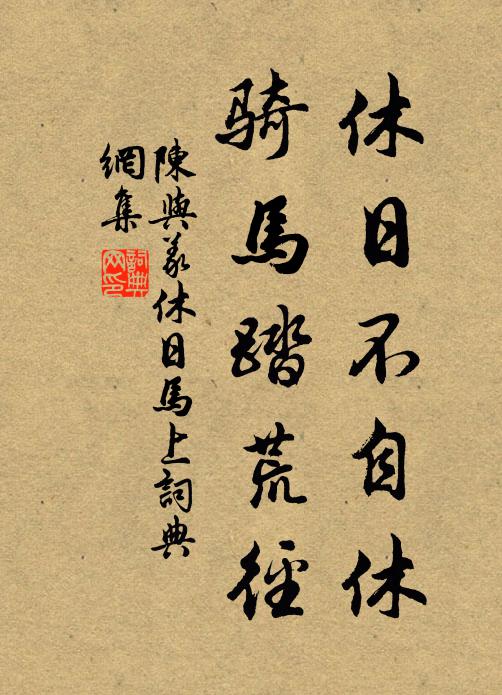 休日不自休
騎馬踏荒徑
陳與義休日馬上詞典
網集
詞典
网印